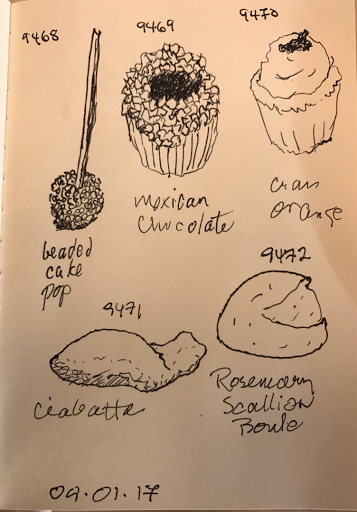 9468
9469
9470
beaded
cake
pop
mexican
Chocolate
cran
orange
9471
ciabatta
9472
Rosemary
Scallian
Boule
09.01.17